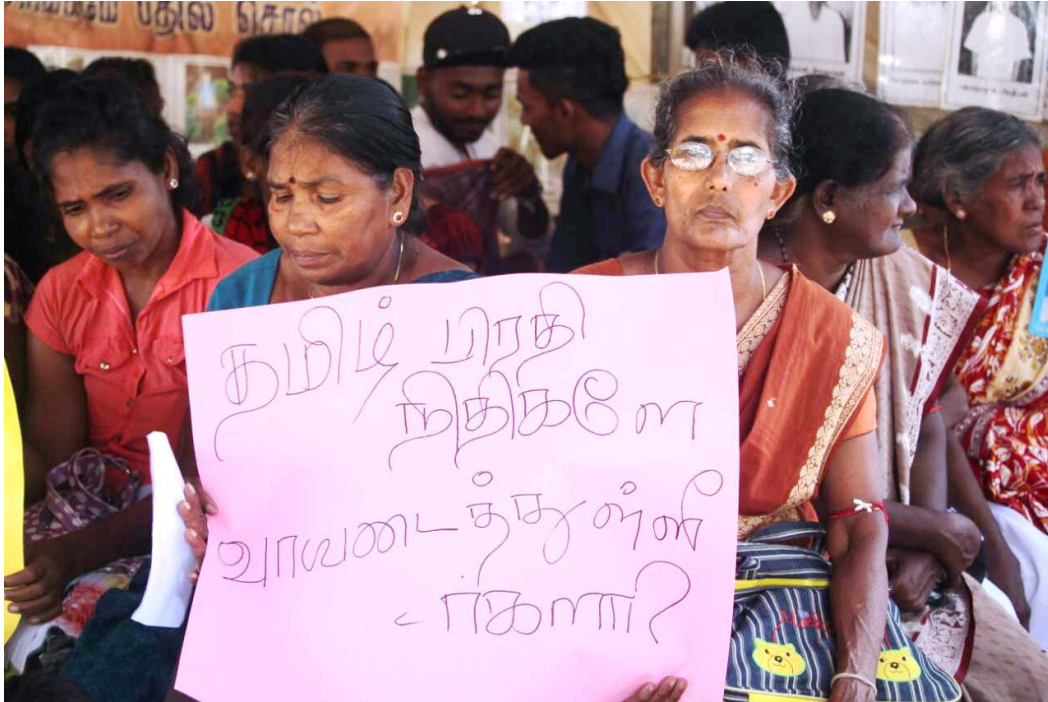 பதில் சொல்
தமிழ் பிரதி
நிதிகளே
வாயடைத்துள்ளீ
-ர்களா?